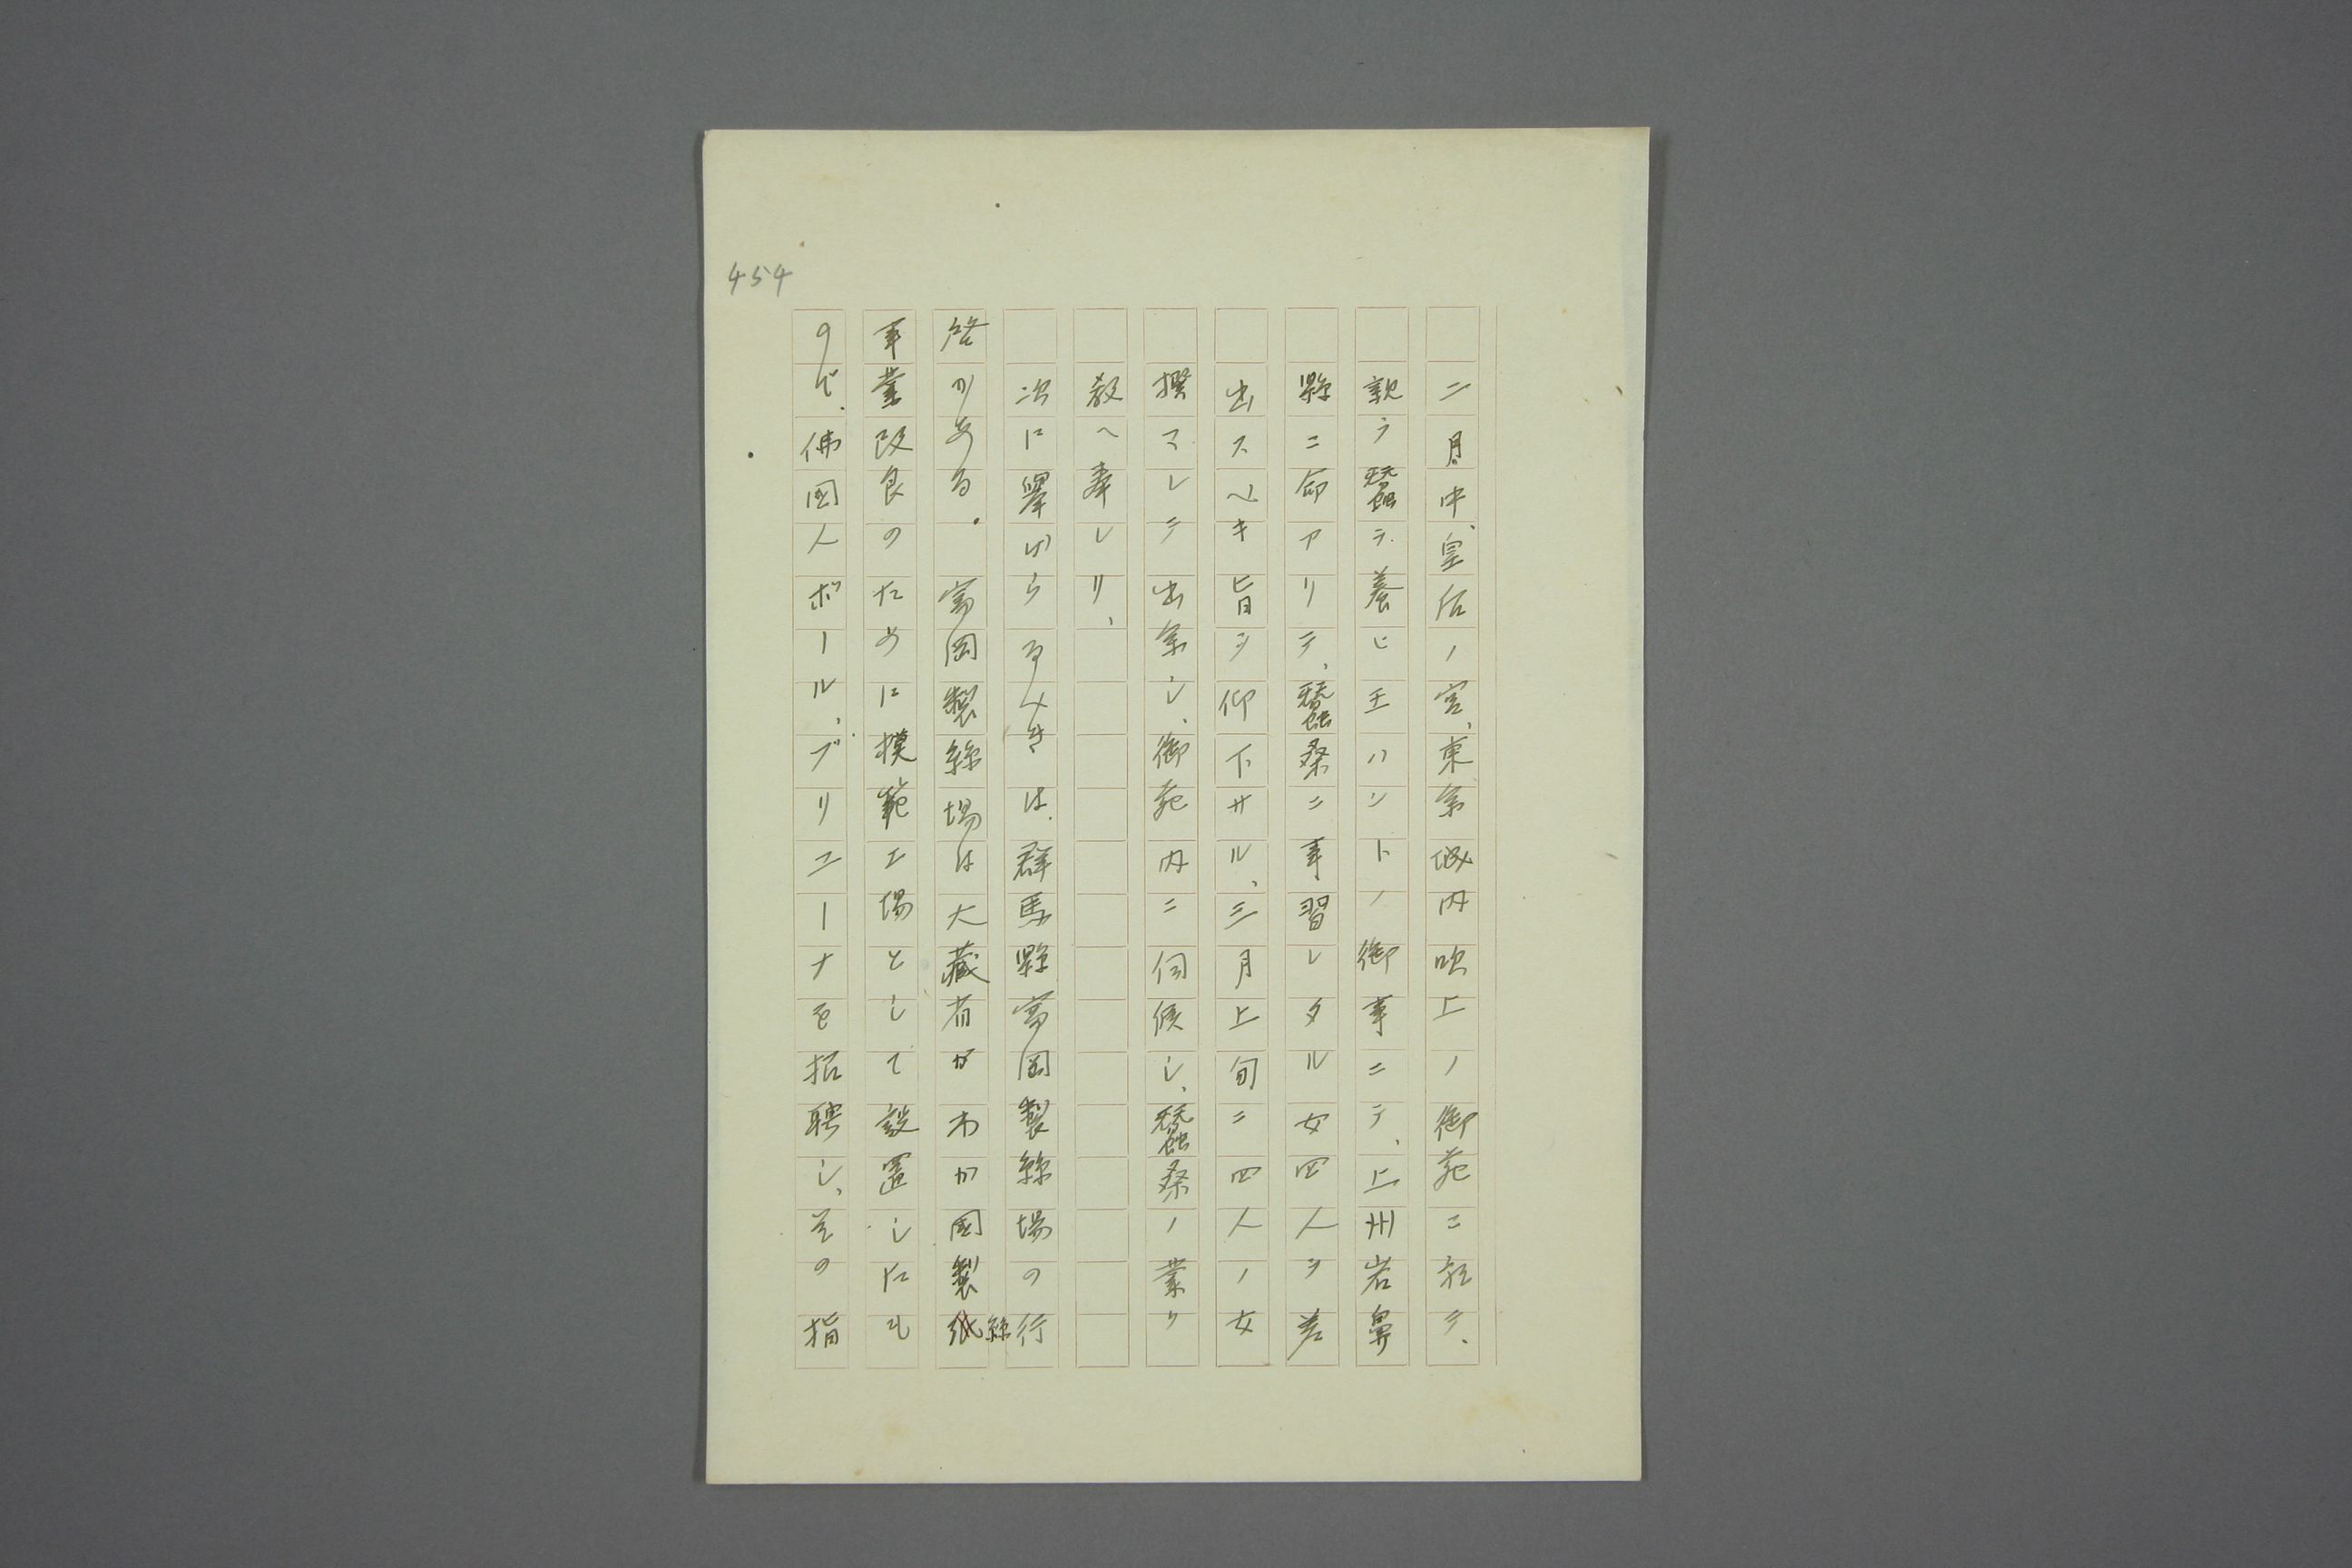 454
二月中、皇后ノ宮、東京城内吹上ノ御苑ニ於テ、
親ラ蠶ヲ養ヒ玉ハントノ御事ニテ、上州岩鼻
縣ニ命アリテ、蠶桑ニ事習レタル女四人ヲ差
出スヘキ旨ヲ仰下サル、三月上旬ニ四人ノ女
撰マレテ出京シ、御苑内ニ伺候シ、蠶桑ノ業ヲ
教ヘ奉レリ、
次に擧げらるべきは、群馬縣富岡製絲場の行
啓がある。富岡製絲場は大藏省がわが國製絲
事業改良のために模範工場として設置したも
ので、佛國人ボール、ブリユーナを招聘し、その指